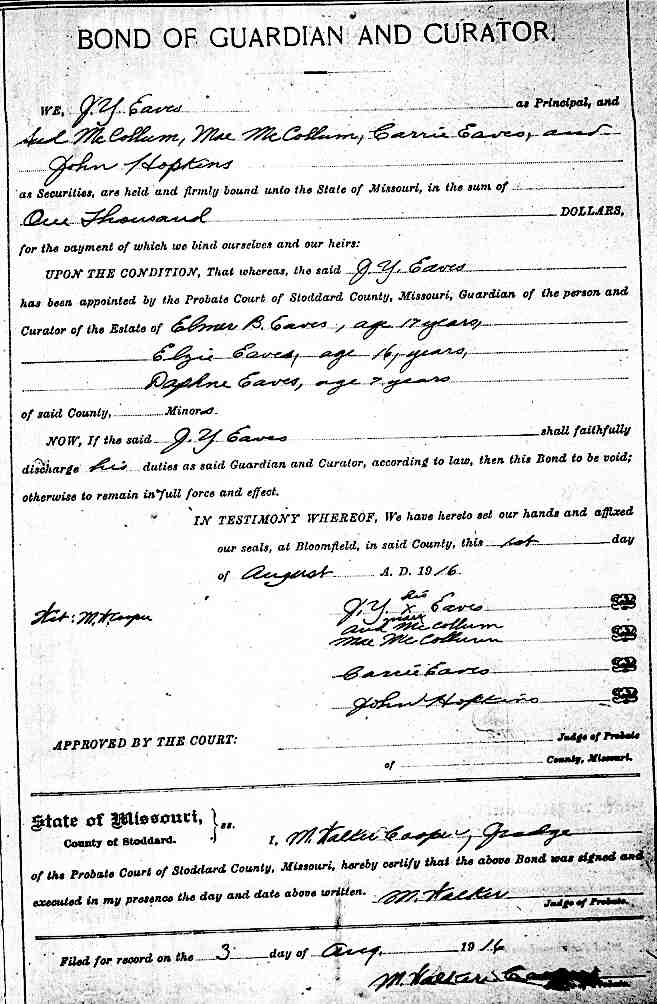 BOND OF GUARDIAN AND CURATOR.
WE, J. Y. Eaves as Principal, and
Aud McCollum, Mae McCollum, Carrie Eaves, and
John Hopkins
as Securities, are held and firmly bound unto the State of Missouri, in the sum of
One Thousand DOLLARS,
for the payment of which we bind ourselves and our heirs:
UPON THE CONDITION, That whereas, the said J. Y. Eaves
has been appointed by the Probate Court of Stoddard County, Missouri, Guardian of the person and
Curator of the Estate of Elmer B. Eaves, age 17 years,
Elzie Eaves, age 16, years,
Daphne Eaves, age 7 years
of said County, Minors.
NOW, If the said J. Y Eaves shall faithfully
discharge his duties as said Guardian and Curator, according to law, then this Bond to be void;
otherwise to remain in full force and effect.
IN TESTIMONY WHEREOF, We have hereto set our hands and affixed
our seals, at Bloomfield, in said County, this 1st day
of August A. D. 1916.
his
Wit: M. W Cooper J. Y. x Eaves
mark
Aud McCollum
Mae McCollum
Carrie Eaves
John Hopkins
APPROVED BY THE COURT: Judge of Probate
of County, Missouri.
State of Missouri, } ss.
County of Stoddard.
I, M. Walker Cooper, Judge
of the Probate Court of Stoddard County, Missouri, hereby certify that the above Bond was signed and
executed in my presence the day and date above written. M. Walker
Judge of Probate.
Filed for record on the 3 day of Aug. 1916
M. Walker Cooper